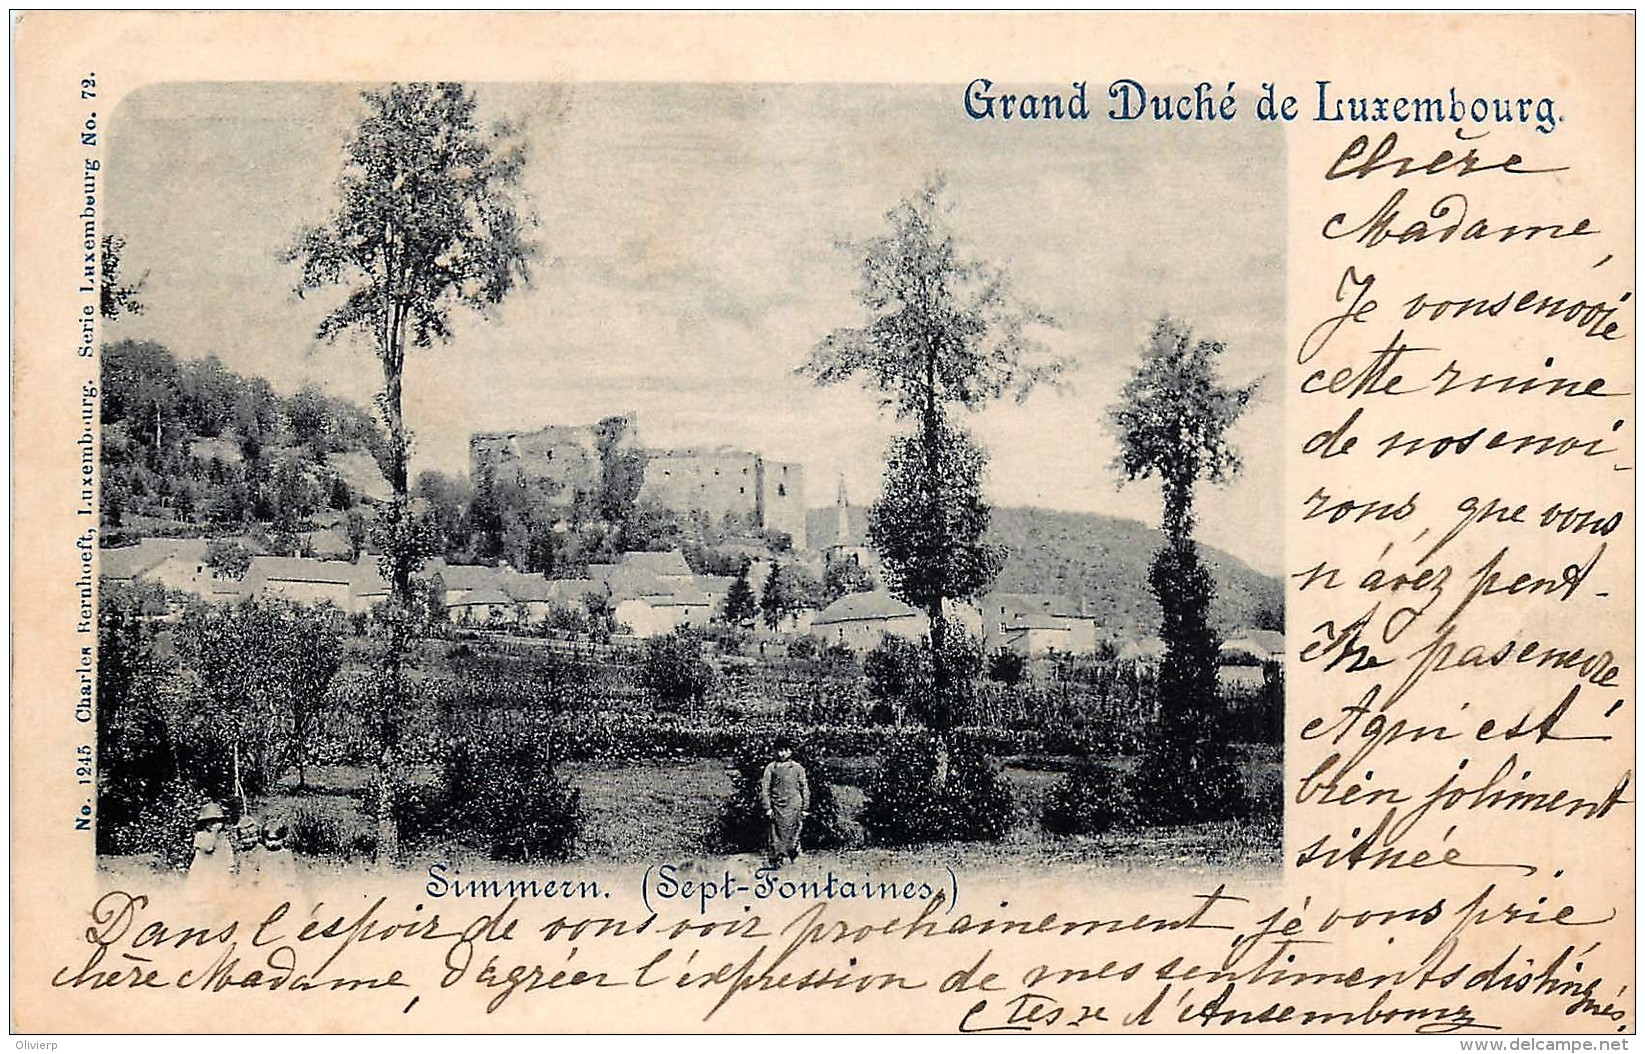 Grand Duché de Luxembourg.
No. 1245 Charles Bernhoeft, Luxembourg. Serie Luxembourg No. 72.
Chère
Madame,
Je vous envoie
cette ruine
de nos envi-
rons, que vous
n'avez peut-
être pas encore
qui est
bien joliment
située.
Simmern. (Sept-Fontaines.)
Dans l'éspoir de vous voir prochainement, je vous prie
chère Madame, d'agréer l'éxpression de mes sentiments disting
ués.
Ctesse d'Ansembourg
Olivierp
delcampe.net